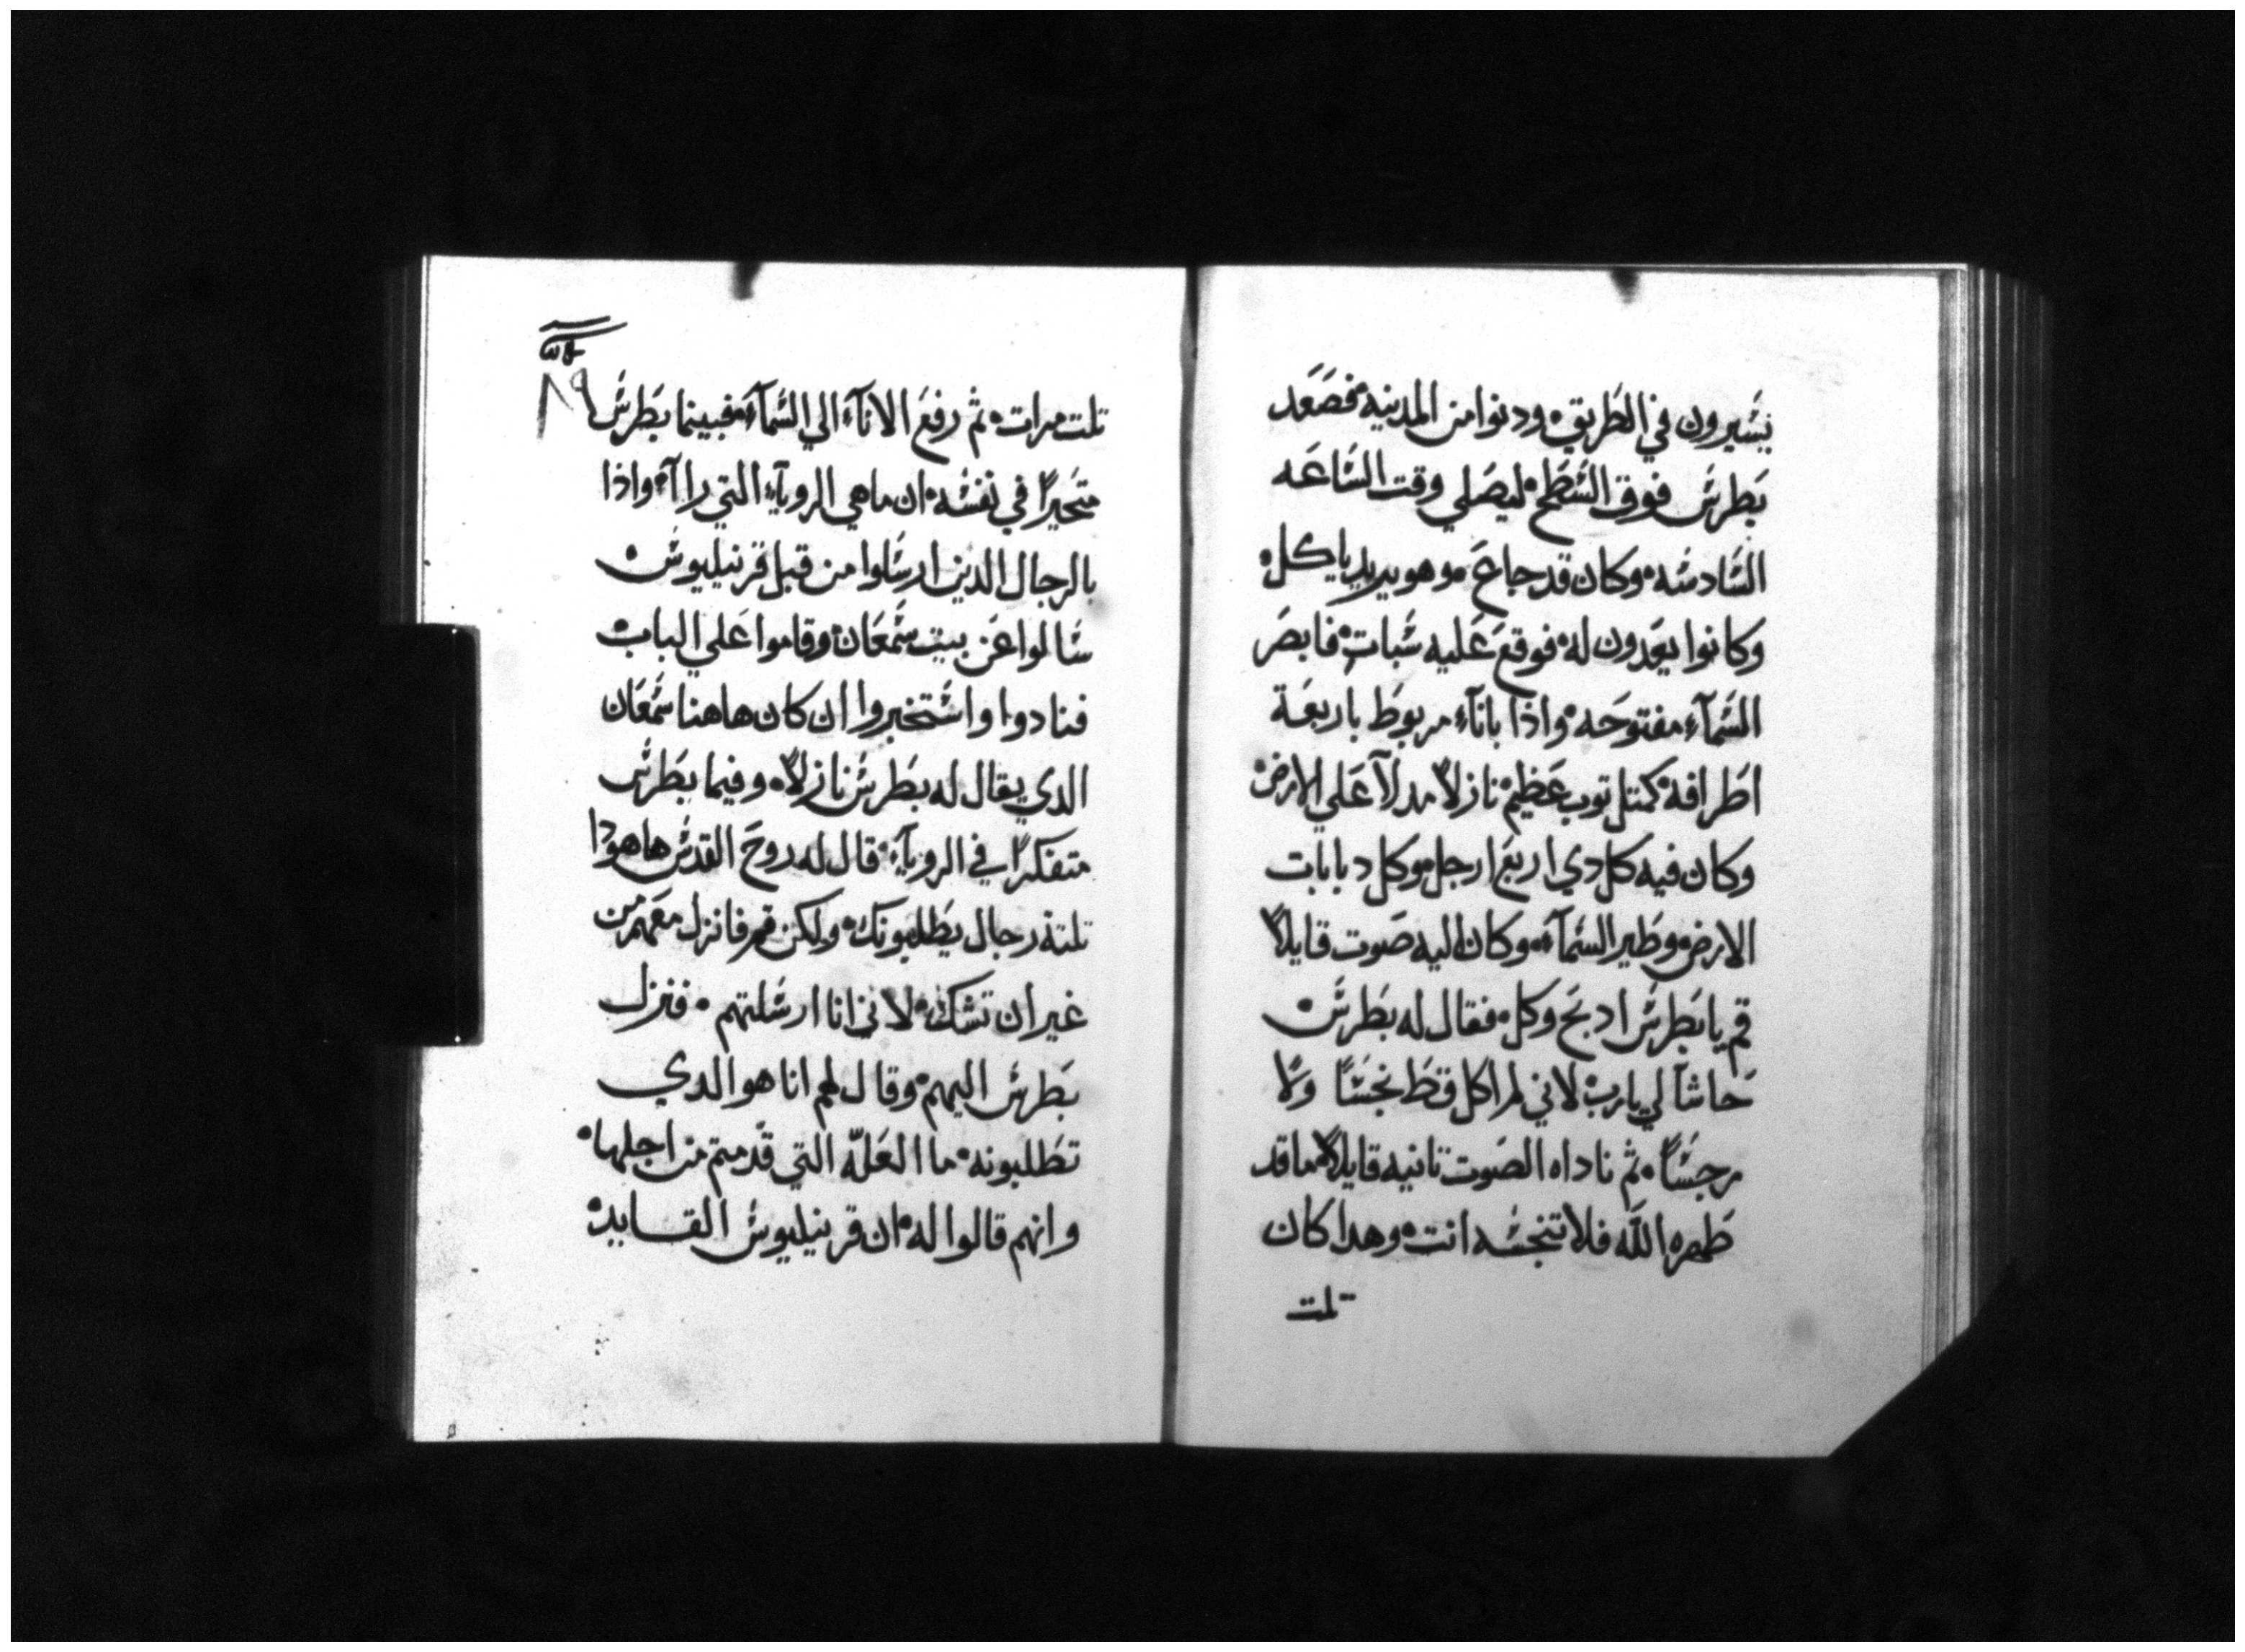 يسيرون في الطريق ودنوا من المدينه فصعد
بطرس فوق السطح ليصلي وقت الساعه
السادسه وكان قد جاع وهو يريد ياكل
وكانوا يعدون له فوقع عليه سبات فابصر
السمآء مفتوحه واذا بانآء مربوط باربعة
اطرافه كمتل توب عظيم نازلاً مدلآ علي الارض
وكان فيه كل دي اربع ارجل وكل دبابات
الارض وطير السمآء وكان اليه صوت قايلاً
قم يا بطرس ادبح وكل فقال له بطرس
حاشا لي يارب لاني لم اكل قط نجسًا ولا
رجسًا ثم ناداه الصوت تانيه قايلاً ما قد
طهره الله فلا تنجسه انت وهدا كان
تلت
٨٩
تلت مرات ثم رفع الانآء الي السمآء فبينما بطرس
متحيرًا في نفسه ان ما هي الرويآء التي راآه واذا
بالرجال الدين ارسلوا من قبل قرنيليوس
سالوا عن بيت سمعان وقاموا علي الباب
فنادوا واستخبروا ان كان هاهنا سمعان
الدي يقال له بطرس نازلاً وفيما بطرس
متفكرًا في الرويآء قال له روح القدس هاهودا
تلتة رجال يطلبونك ولكن قم فانزل معهم من
غير ان تشك لاني انا ارسلتهم فنزل
بطرس اليهم وقال لهم انا هو الدي
تطلبونه ما العلّه التي قدمتم من اجلها
وانهم قالوا له ان قرنيليوس القايد